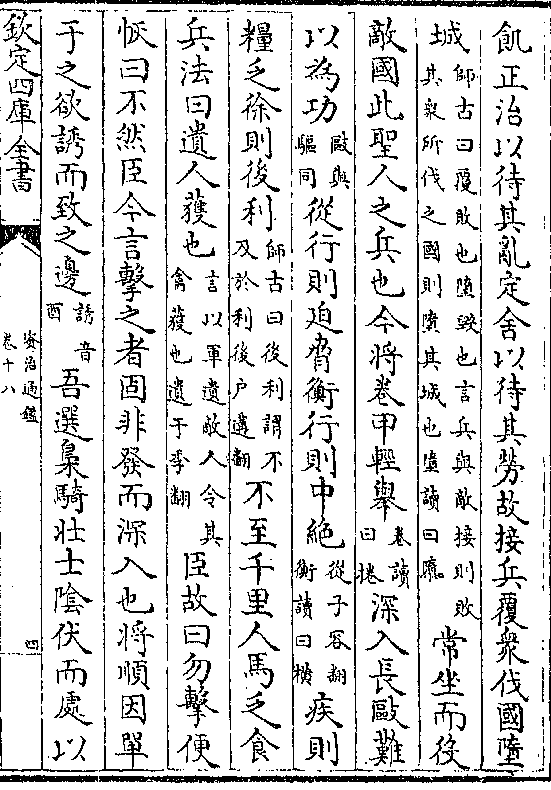 飢正治以待其亂定舍以待其勞故接兵覆衆伐國墮
城師古曰覆敗也墮毀也言兵與敵接則敗其衆所伐之國則隳其城也墮讀曰隳常坐而役
敵國此聖人之兵也今將卷甲輕舉卷讀曰捲深入長敺難
以為功敺與驅同從行則迫脅衡行則中絶從子容翻衡讀曰横疾則
糧乏徐則後利師古曰後利謂不及於利後户遘翻不至千里人馬乏食
兵法曰遺人獲也言以軍遺敵人令其禽獲也遺于季翻臣故曰勿擊便
恢曰不然臣今言擊之者固非發而深入也將順因單
于之欲誘而致之邊誘音酉吾選梟騎壯士隂伏而處以
欽定四庫全書
資治通鑑
卷十八
四